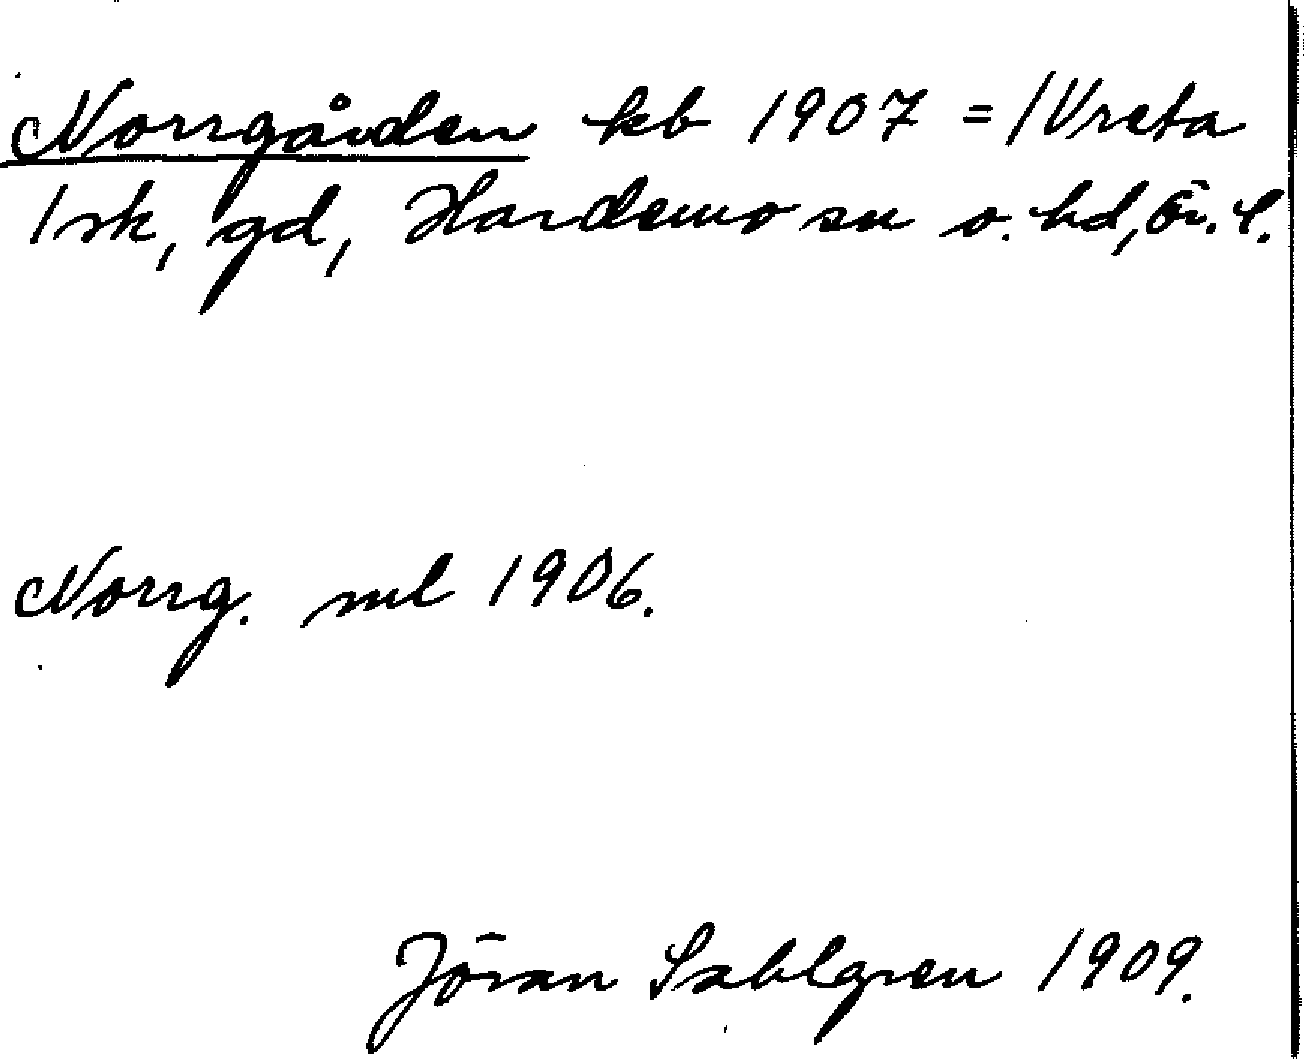 Norrgården kb 1907 = /Vreta
1 sk, gd, Hardemo sn o. hd, Ör. l.
Norrg. ml 1906.
Jöran Sahlgren 1909.